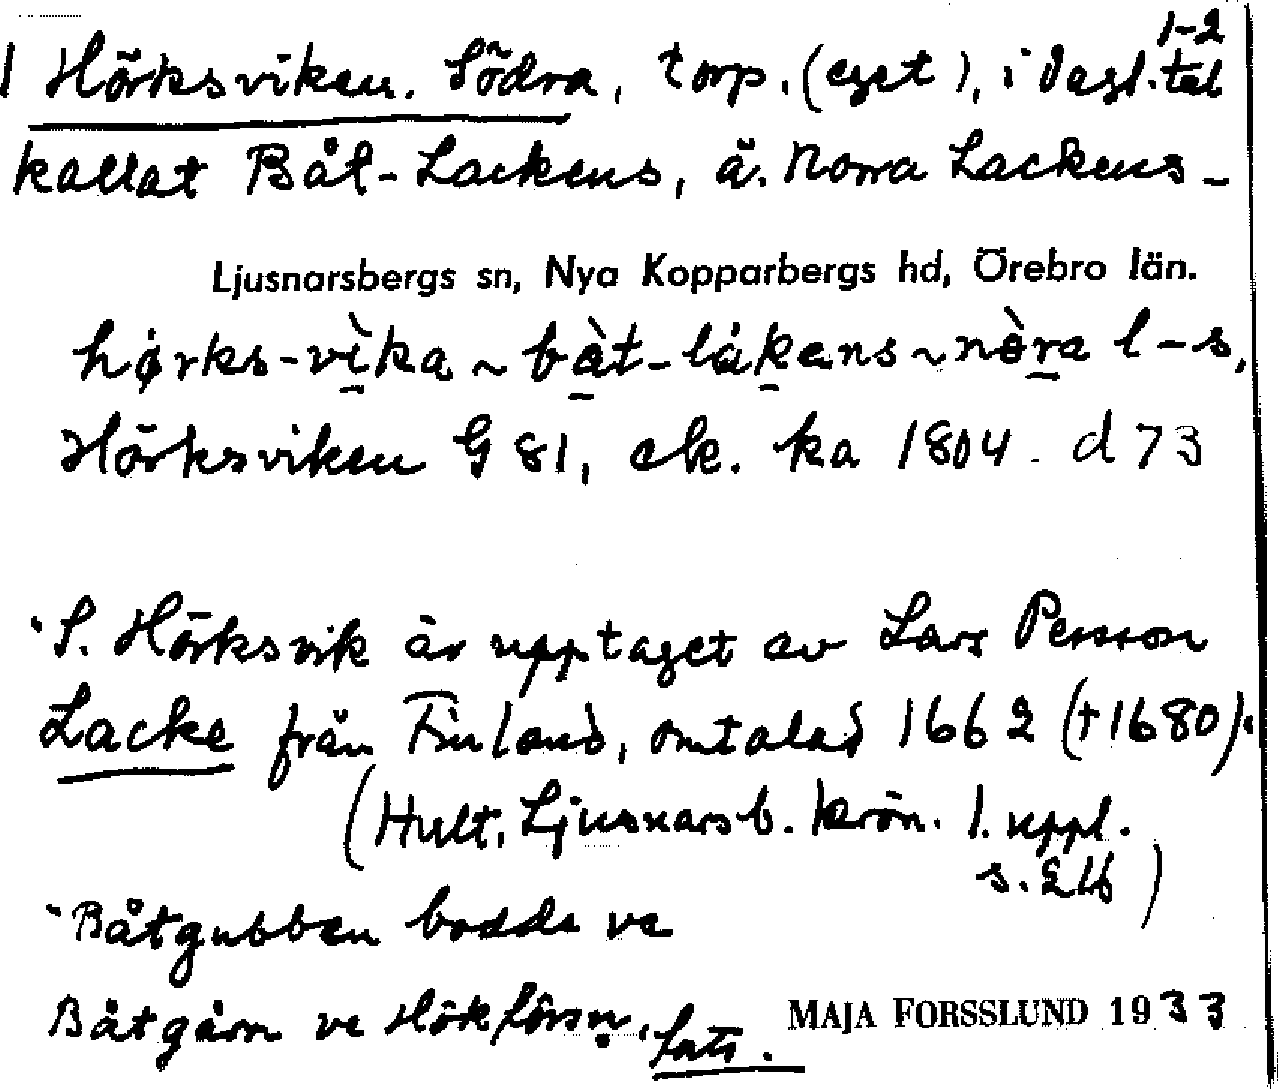 1-2
1 Hörksviken. Södra, torp. (eget), i dagl. tal
kallat Båt-Lackens, ä. Norra Lackens-
Ljusnarsbergs sn, Nya Kopparbergs hd, Örebro län.
hørks-vìka ~ bàt-låkens ~ nòra l-s,
Hörksviken G 81, ek. ka 1804. d 73
"S. Hörksvik är upptaget av Lars Persson
Lacke från Finland, omtalad 1662 (†1680).
(Hult. Ljusnarsb. krön. 1. uppl.
s. 216)
"Båtgubben bodde ve
Båtgårn ve Hökförsn.
MAJA FORSSLUND 1933